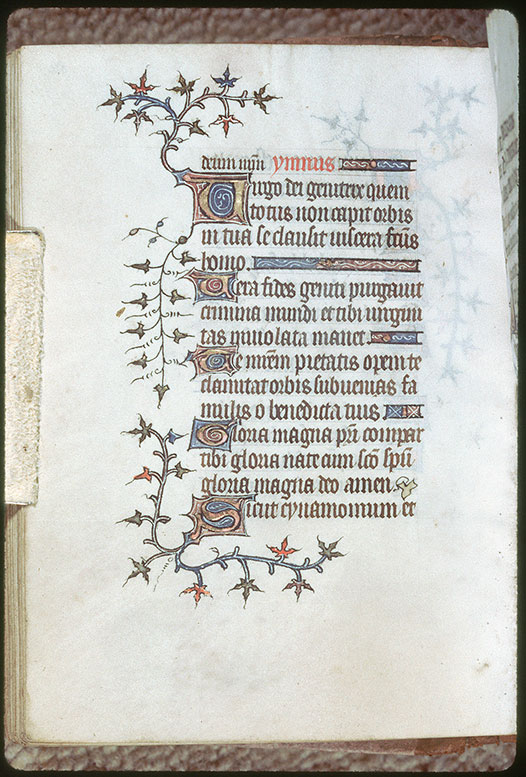 deum nr̄m ymnus
Uirgo dei genitrix quem
totus non capit orbis
in tua se clausit uiscera fc̄us
homo.
Uera fides geniti purgauit
crimina mundi et tibi uirgini
tas inuiolata manet.
Te mr̄em pietatis opem te
clamitat orbis subuenias fa
mulis o benedicta tuis
Gloria magna pr̄i compar
tibi gloria nate cum sc̄o spū
gloria magna deo amen.
Sicut cynamomum et